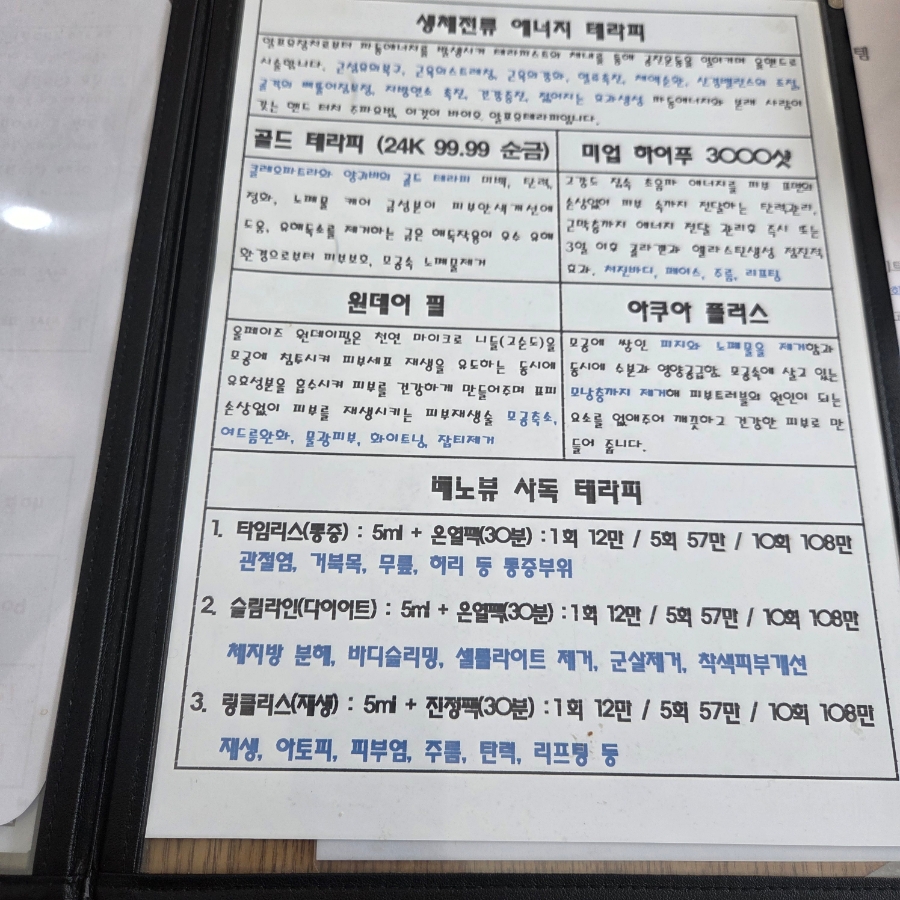 생체전류 에너지 테라피
시술합니다. 근섬유의복구, 근육의스트레칭, 근육의강화, 혈류촉진, 체액순환, 신경밸런스의 조정,
골드 테라피 (24K 99.99 순금)
클레오파트라와 양귀비의 골드 테라피 미백, 탄력,
정화, 노폐물 케어 금성분이 피부안색개선에
도움, 유해독소를 제거하는 금은 해독작용이 우수 유해
환경으로부터 피부보호, 모공속 노폐물제거
미업 하이푸 3000샷
고강도 집속 초음파 에너지를 피부 표면의
손상없이 피부 속까지 전달하는 탄력관리,
근막층까지 에너지 전달 관리후 즉시 또는
3일 이후 콜라겐과 엘라스틴생성 점진적
효과. 처진바디, 페이스, 주름, 리프팅
원데이 필
올페이즈 원데이필은 천연 마이크로 니들(고순도)을
모공에 침투시켜 피부세포 재생을 유도하는 동시에
유효성분을 흡수시켜 피부를 건강하게 만들어주며 표피
손상없이 피부를 재생시키는 피부재생술 모공축소,
여드름완화, 물광피부, 화이트닝, 잡티제거
아쿠아 플러스
모공에 쌓인 피지와 노폐물을 제거함과
동시에 수분과 영양공급함. 모공속에 살고 있는
모낭충까지 제거해 피부트러블의 원인이 되는
요소를 없애주어 깨끗하고 건강한 피부로 만
들어 줍니다.
베노뷰 사독 테라피
1. 타임리스(통증) : 5ml + 온열팩(30분) : 1회 12만 / 5회 57만 / 10회 108만
관절염, 거북목, 무릎, 허리 등 통증부위
2. 슬림라인(다이어트) : 5ml + 온열팩(30분) : 1회 12만 / 5회 57만 / 10회 108만
체지방 분해, 바디슬리밍, 셀룰라이트 제거, 군살제거, 착색피부개선
3. 링클리스(재생) : 5ml + 진정팩(30분) : 1회 12만 / 5회 57만 / 10회 108만
재생, 아토피, 피부염, 주름, 탄력, 리프팅 등